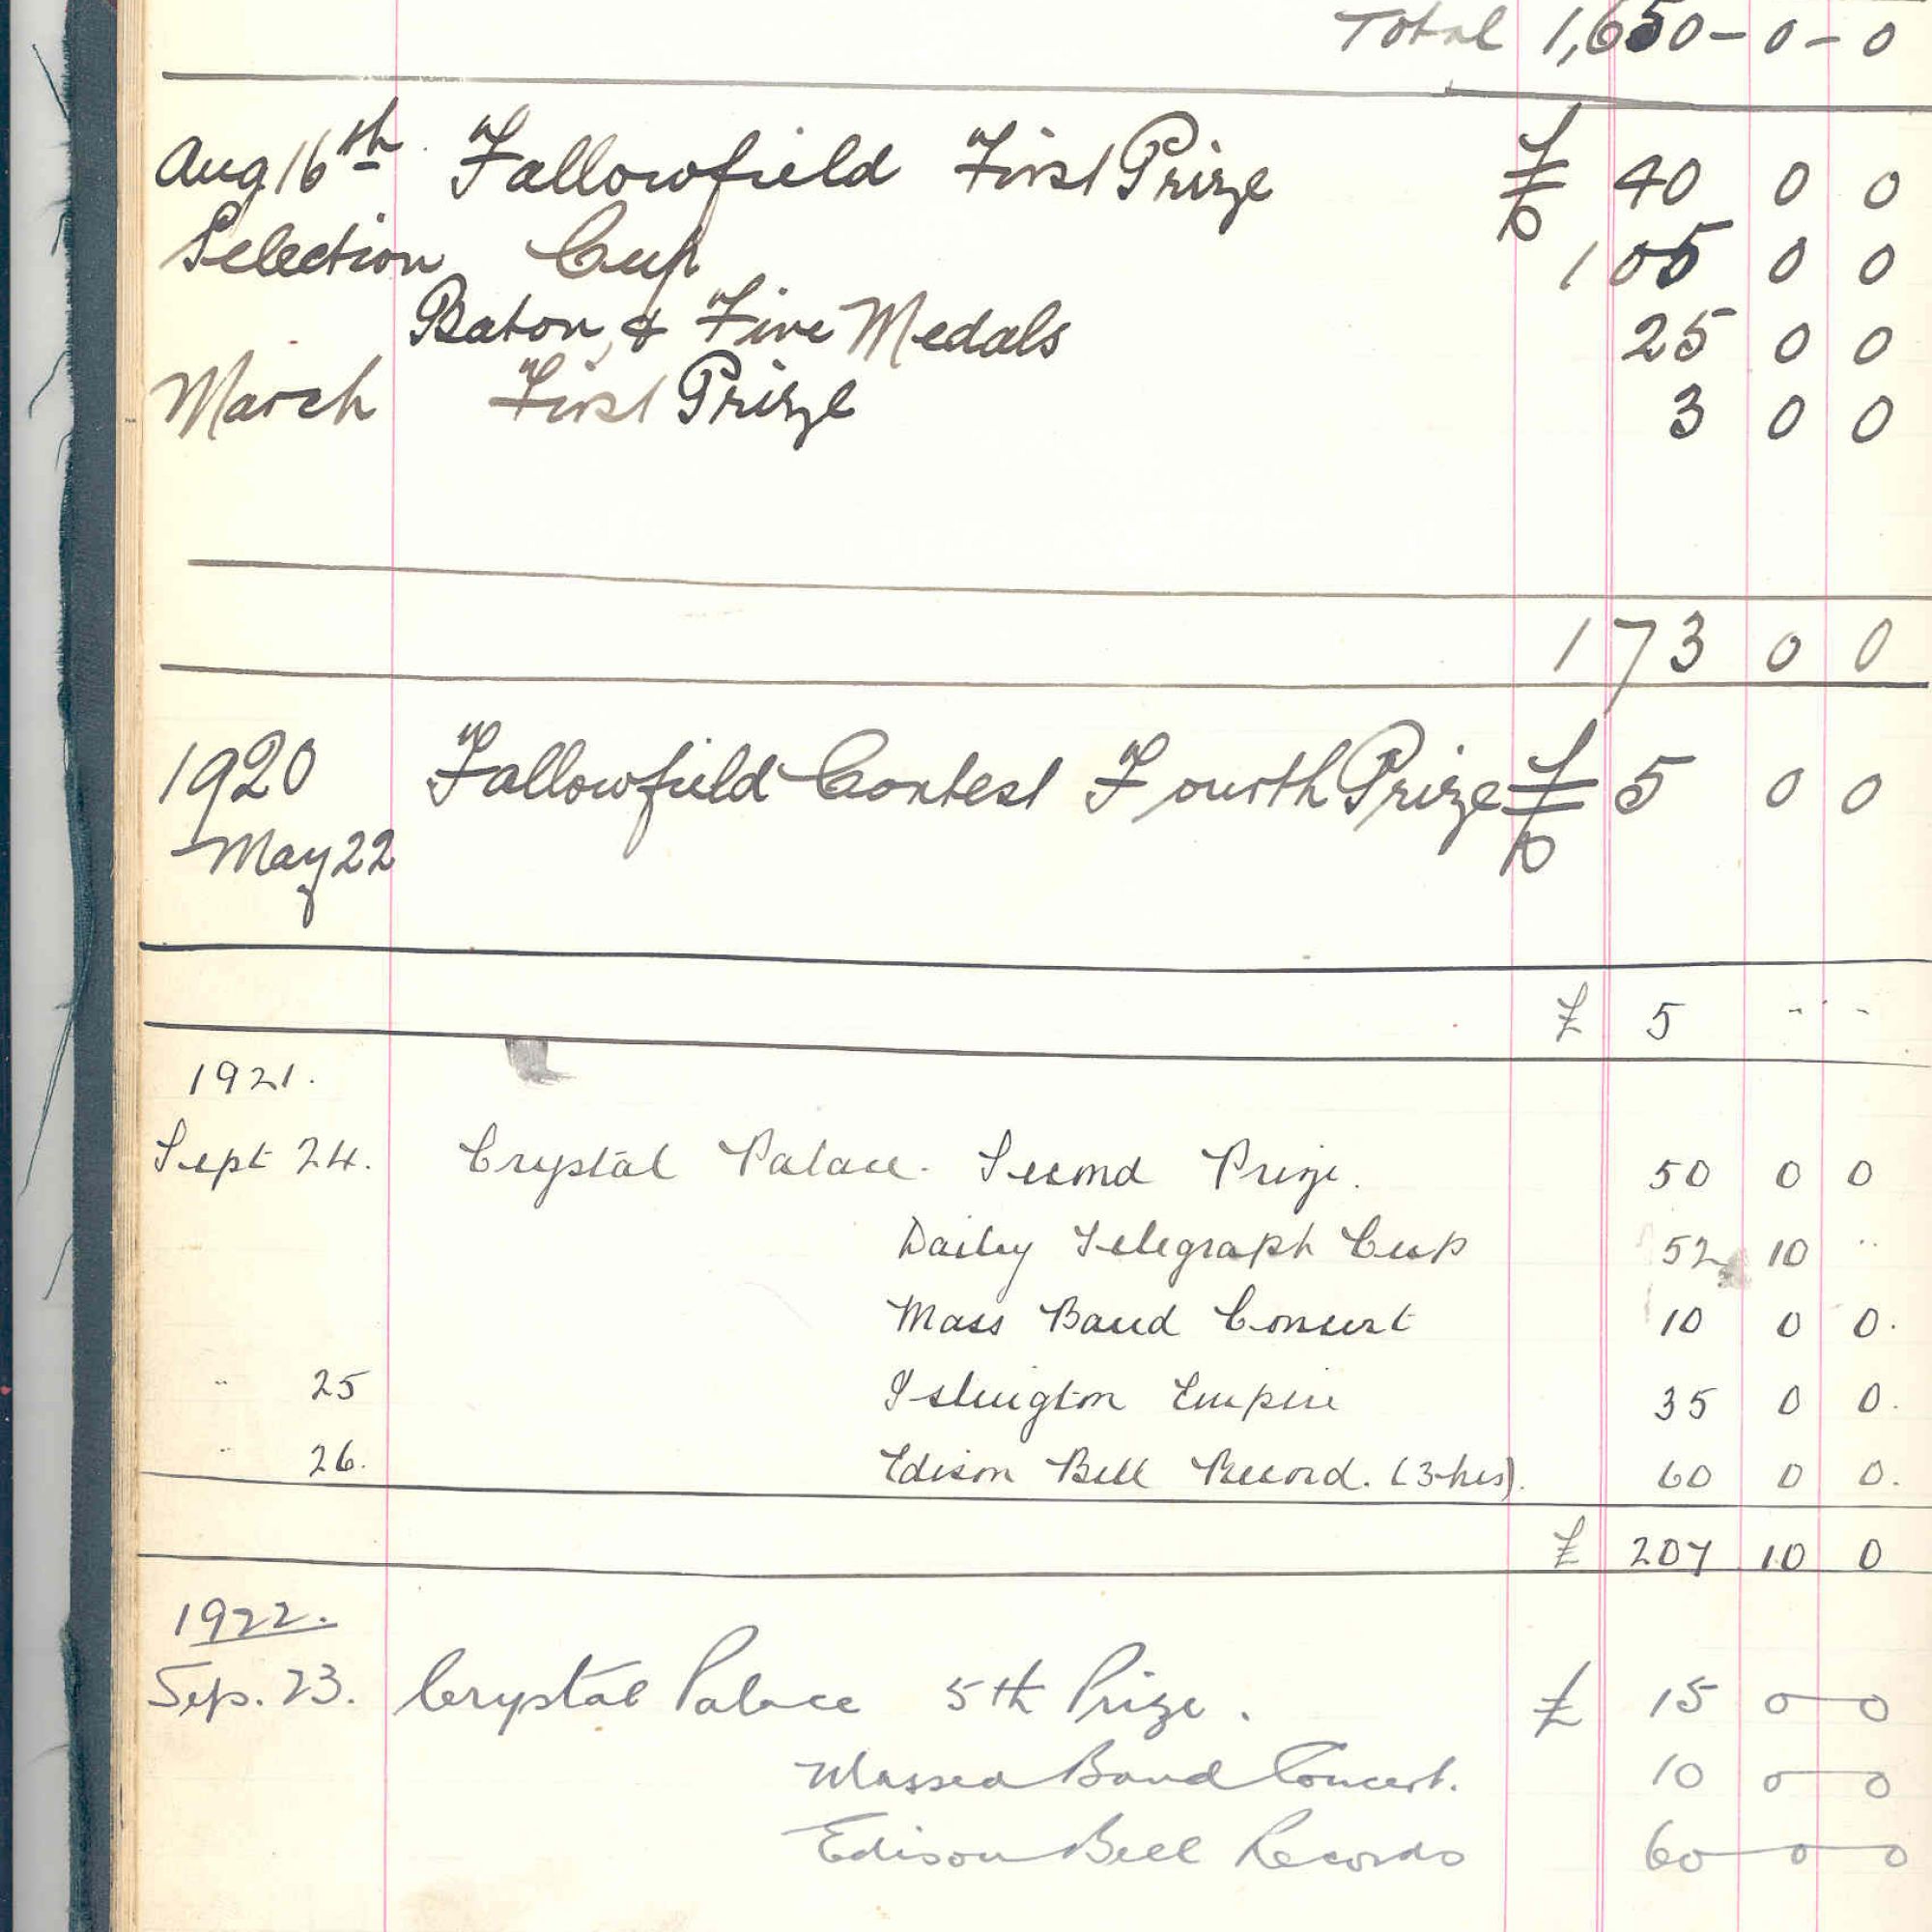 Total 1,650 - 0 - 0
Aug 16th. Fallowfield First Prize £ 40 0 0
Selection Cup 105 0 0
Baton & Five Medals 25 0 0
March First Prize 3 0 0
173 0 0
1920 Fallowfield Contest Fourth Prize £ 5 0 0
May 22
£ 5 - -
1921.
Sept 24. Crystal Palace. Second Prize. 50 0 0
Daily Telegraph Cup 52 10 ..
Mass Band Concert 10 0 0.
" 25 Islington Empire 35 0 0.
" 26. Edison Bell Record. (3 hrs). 60 0 0.
£ 207 10 0
1922.
Sep. 23. Crystal Palace 5th Prize. £ 15 0 - 0
Massed Band Concert. 10 0 - 0
Edison Bell Records 60 - 0 - 0